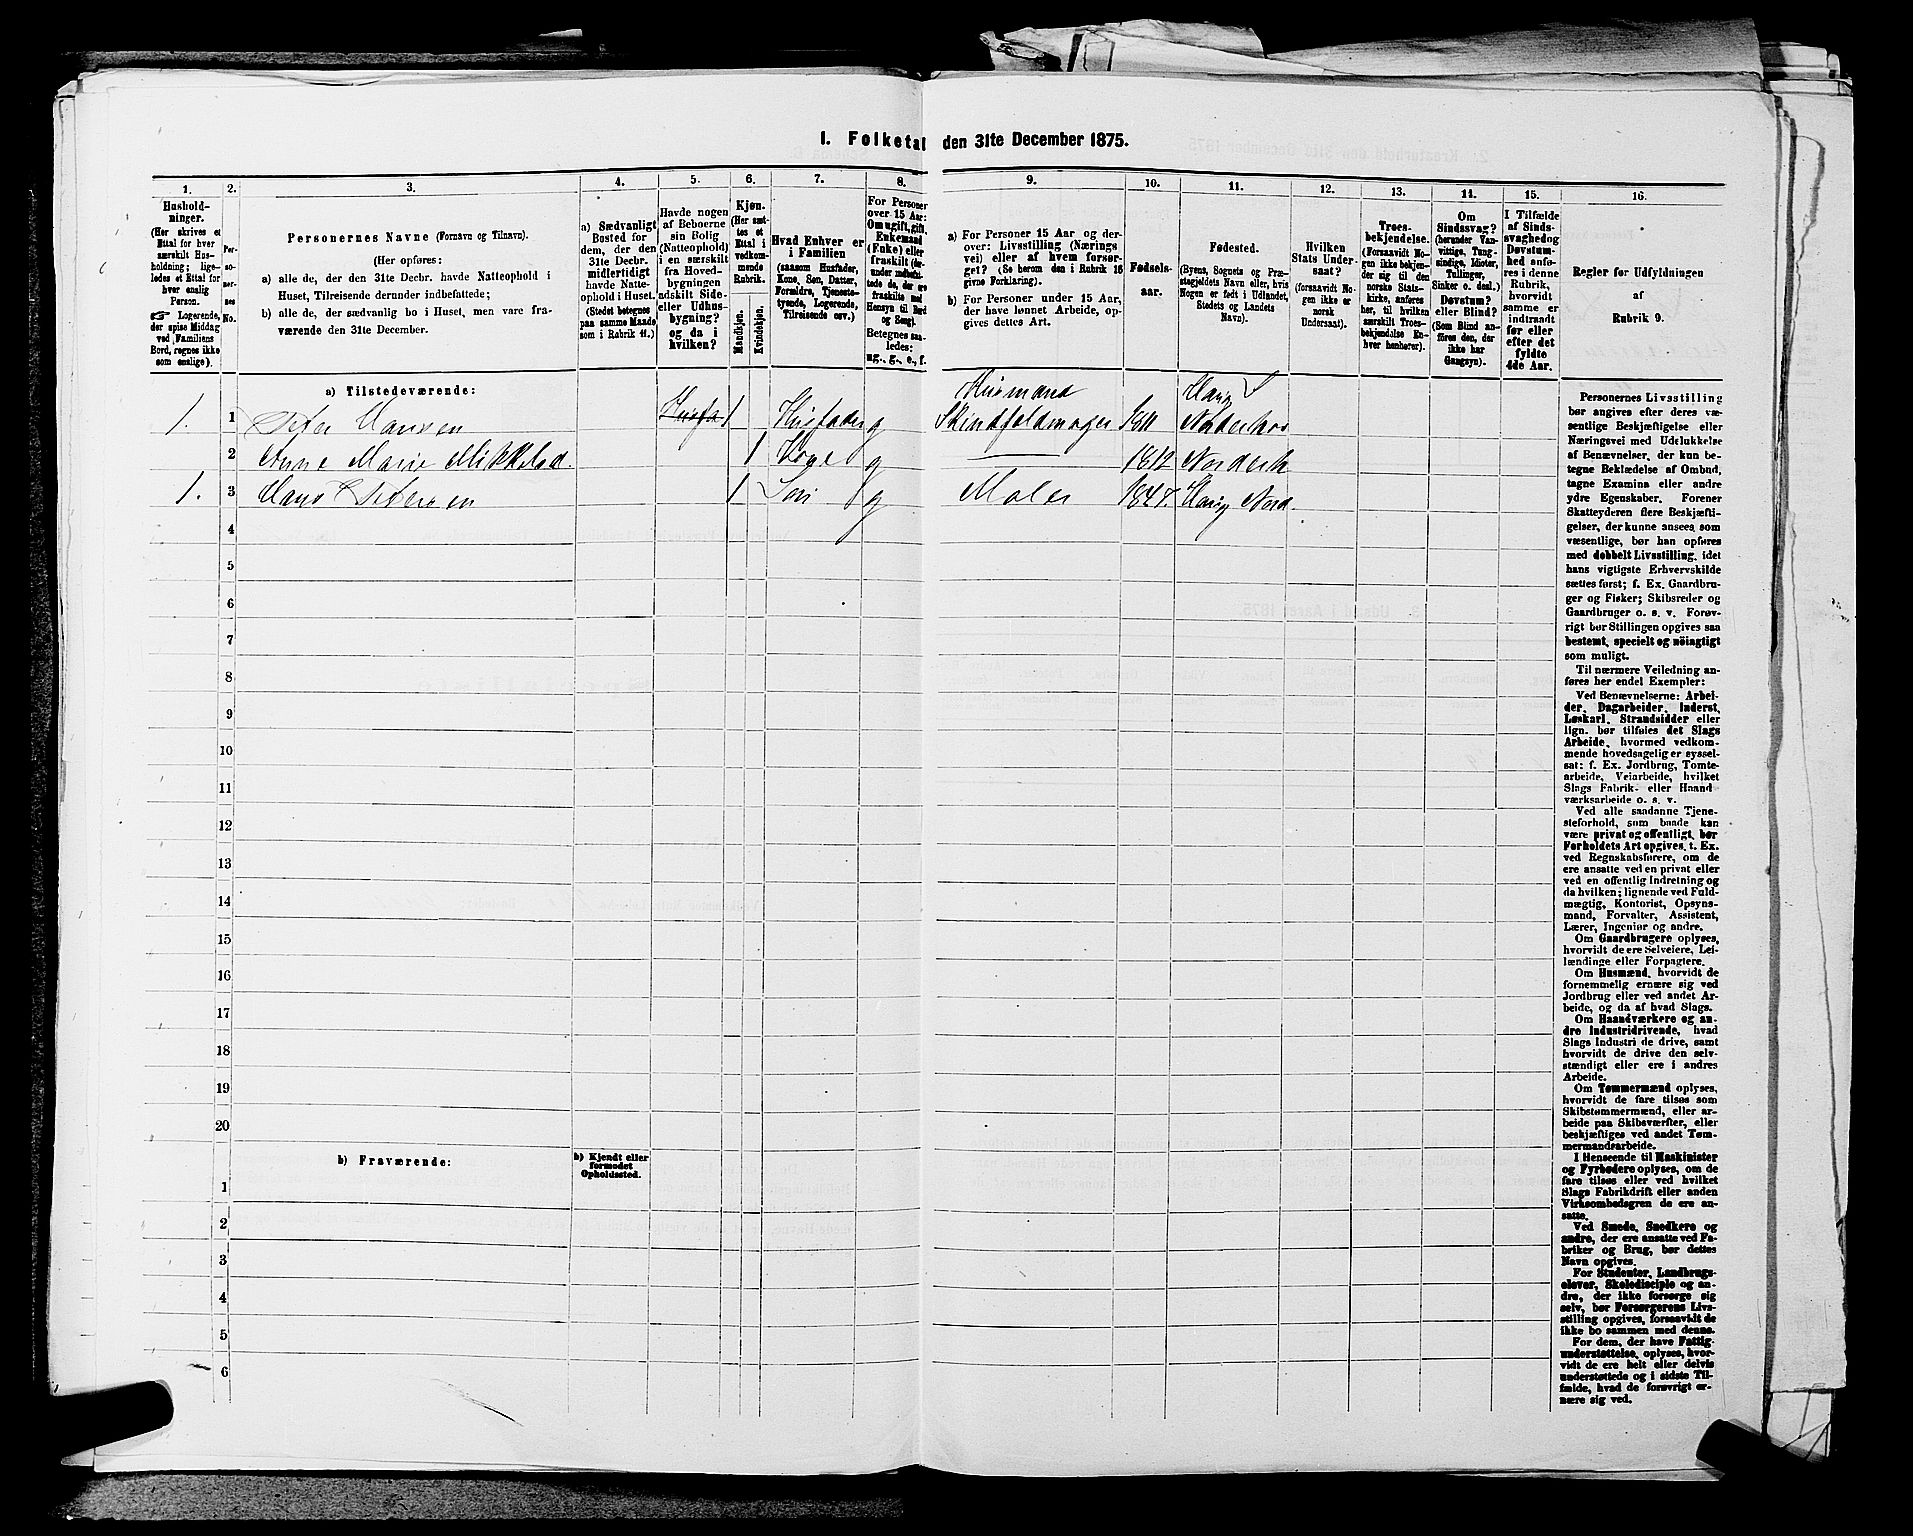 1. Folketal den 31te December 1875.
1. 2. 3. 4. 5. 6. 7. 8. 9. 10. 11. 12. 13. 14. 15. 16.
Hushold-
ninger.
(Her skrives et
Ettal for hver
særskilt Hus-
holdning; lige-
ledes et Ettal for
hver enslig
Person.
☞ Logerende,
der spise Middag
ved Familiens
Bord, regnes ikke
som enslige).
Per-
so-
ner-
nes
No.
Personernes Navne (Fornavn og Tilnavn).
(Her opføres:
a) alle de, der den 31te Decbr. havde Natteophold i
Huset, Tilreisende derunder indbefattede;
b) alle de, der sædvanlig bo i Huset, men vare fra-
værende den 31te December.
a) Sædvanligt
Bosted for
dem, der den
31te Decbr.
midlertidigt
havde Natte-
ophold i Huset.
(Stedet betegnes
paa samme Maade
som i Rubrik 11.)
Havde nogen
af Beboerne
sin Bolig
(Natteophold)
i en særskilt
fra Hoved-
bygningen
adskilt Side-
eller Udhus-
bygning?
og da i
hvilken?
Kjøn.
(Her sæt-
tes et
Ettal i
vedkom-
mende
Rubrik.
Mandkjøn.
Kvindekjøn.
Hvad Enhver er
i Familien
(saasom Husfader,
Kone, Søn, Datter,
Forældre, Tjeneste-
tyende, Logerende,
Tilreisende osv.)
For Personer
over 15 Aar:
Om ugift, gift,
Enkemand
(Enke) eller
fraskilt (der-
under indbefat-
tede de, der ere
fraskilte med
Hensyn til Bord
og Seng).
Betegnes saa-
ledes:
ug., g., e., f.
a) For Personer 15 Aar og der-
over: Livsstilling (Nærings
vei) eller af hvem forsør-
get? (Se herom den i Rubrik 16
givne Forklaring).
b) For Personer under 15 Aar,
der have lønnet Arbeide, op-
gives dettes Art.
Fødsels-
aar.
Fødested.
(Byens, Sognets og Præ-
stegjeldets Navn eller, hvis
Nogen er født i Udlandet,
Stedets og Landets
Navn).
Hvilken
Stats Under-
saat?
(forsaavidt No-
gen ikke er
norsk
Undersaat).
Troes-
bekjendelse.
(Forsaavidt No-
gen ikke bekjen-
der sig til den
norske Stats-
kirke, anføres
her, til hvilken
særskilt Troes-
bekjendelse En-
hver henhører).
Om
Sindssvag?
(herunder Van-
vittige, Tung-
sindige, Idioter,
Tullinger,
Sinker o. desl.)
Døvstum?
eller Blind?
(Som Blind an-
føres den, der
ikke har
Gangsyn).
I Tilfælde
af Sinds-
svaghed og
Døvstum-
hed anfø-
res i denne
Rubrik,
hvorvidt
samme er
indtraadt
før eller
efter det
fyldte
4de Aar.
Regler før Udfyldningen
af
Rubrik 9.
a) Tilstedeværende:
1. 1 Peter Hansen Husfa 1 Husfader g Husmand Skindfeldmager 1811 Haug Norderhov
2 Anne Marie Mikkelsd. 1 Kone g 1812 Norderh
1. 3 Hans Petersen 1 Søn g Maler 1847. Haug Nord.
4
5
6
7
8
9
10
11
12
13
14
15
16
17
18
19
20
b) Fraværende:
b) Kjendt eller
formodet
Opholdssted.
1
2
3
4
5
6
Personernes Livsstilling
bør angives efter deres væ-
sentlige Beskjæftigelse eller
Næringsvei med Udelukkelse
af Benævnelser, der kun be-
tegne Beklædelse af Ombud,
tagne Examina eller andre
ydre Egenskaber. Forener
Skatteyderen flere Beskjæfti-
gelser, der kunne ansees som
væsentlige, bør han opføres
med dobbelt Livsstilling, idet
hans vigtigste Erhvervskilde
sættes først; f. Ex. Gaardbru-
ger og Fisker; Skibsreder og
Gaardbruger o. s. v. Forøv-
rigt bør Stillingen opgives saa
bestemt, specielt og nöiagtigt
som muligt.
Til nærmere Veiledning an-
føres her endel Exempler:
Ved Benævnelserne: Arbei-
der, Dagarbeider, Inderst,
Løskarl, Strandsidder eller
lign. bør tilføies det Slags
Arbeide, hvormed vedkom-
mende hovedsagelig er syssel-
sat: f. Ex. Jordbrug, Tomte-
arbeide, Veiarbeide, hvilket
Slags Fabrik- eller Haand
værksarbeide o. s. v.
Ved alle saadanne Tjene-
steforhold, som baade kan
være privat og offentligt, bør
Forholdets Art opgives, t. Ex.
ved Regnskabsførere, om de
ere ansatte ved en privat eller
ved en offentlig Indretning og
da hvilken; lignende ved Fuld-
mægtig, Kontorist, Opsyns-
mand, Forvalter, Assistent,
Lærer, Ingeniør og andre.
Om Gaardbrugere oplyses,
hvorvidt de ere Selveiere, Lei-
lændinge eller Forpagtere.
Om Husmænd, hvorvidt de
fornemmelig ernære sig ved
Jordbrug eller ved andet Ar-
beide, og da af hvad Slags.
Om Haandværkere og an-
dre Industridrivende, hvad
Slags Industri de drive, samt
hvorvidt de drive den selv-
stændigt eller ere i andres
Arbeide.
Om Tømmermænd oplyses,
hvorvidt de fare tilsøs som
Skibstømmermænd, eller ar-
beide paa Skibsværfter, eller
beskjæftiges ved andet Tøm-
mermandsarbeide.
I Henseende til Maskinister
og Fyrbødere oplyses, om de
fare tilsøs eller ved hvilket
Slags Fabrikdrift eller anden
Virksomhedsgren de ere an-
satte.
Ved Smede, Snedkere og
andre, der ere ansatte ved Fa-
briker og Brug, bør dettes
Navn opgives.
For Studenter, Landbrugs-
elever, Skoledisciple og an-
dre, der ikke forsørge sig
selv, bør Forsørgerens Livs-
stilling opgives, forsaavidt de
ikke bo sammen med denne.
For dem, der have Fattig-
understøttelse, oplyses, hvor-
vidt de ere helt eller delvis
understøttede og i sidste Til-
fælde, hvad de forøvrigt er-
nære sig ved.